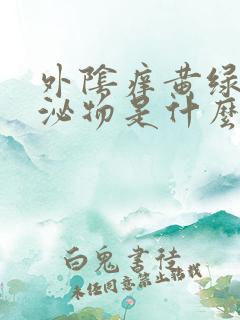 外陰痒黄绿
泌物是什麽
白鬼書徒
未经同意禁止转载